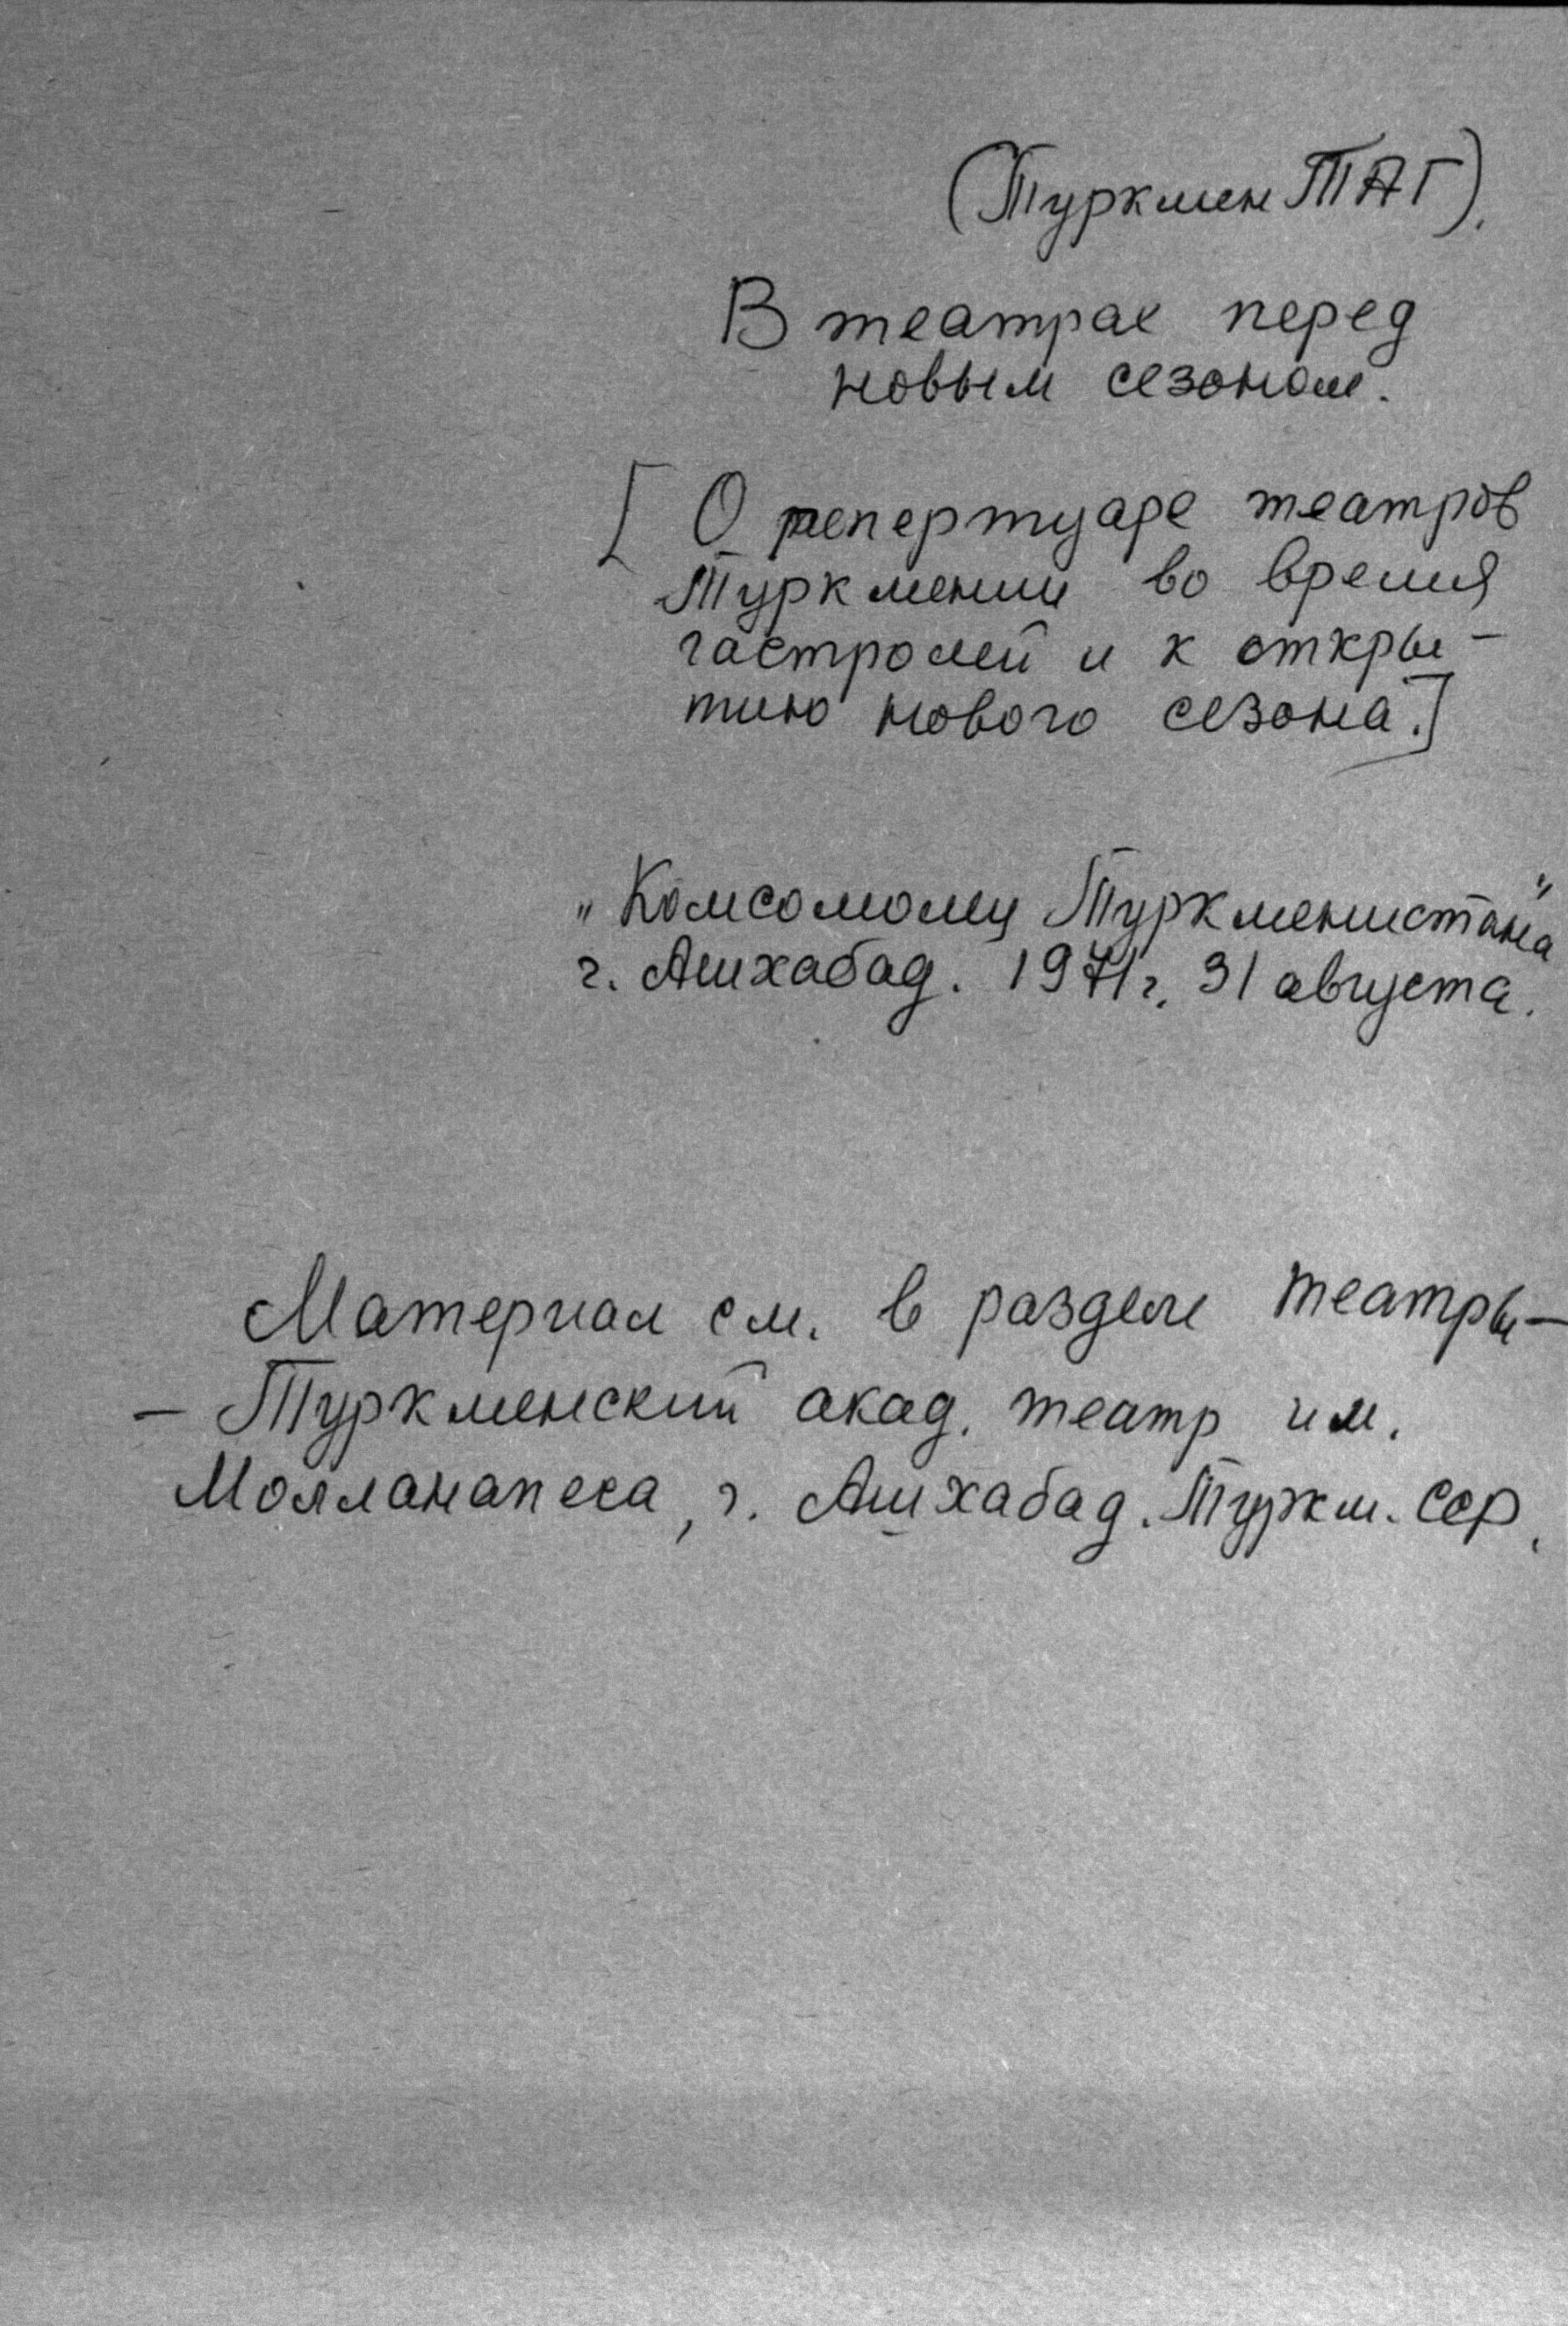 (ТуркменТАГ).
В театрах перед
новым сезоном.
[О репертуаре театров
Туркмении во время
гастролей и к откры-
тию нового сезона.]
„Комсомолец Туркменистана"
г. Ашхабад. 1971г. 31 августа.
Материал см. в разделе театры-
- Туркменский акад. театр им.
Молланапеса, г. Ашхабад. Туркм. ССР.